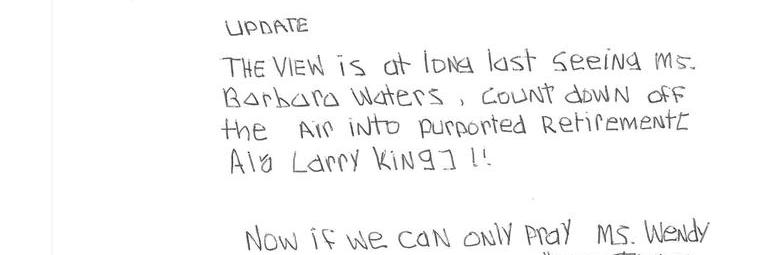 UPDATE
THE VIEW is at long last seeing Ms.
Barbara Waters, count down off
the Air into purported Retirement[
Ala Larry King] !!
Now if we can only pray Ms. Wendy